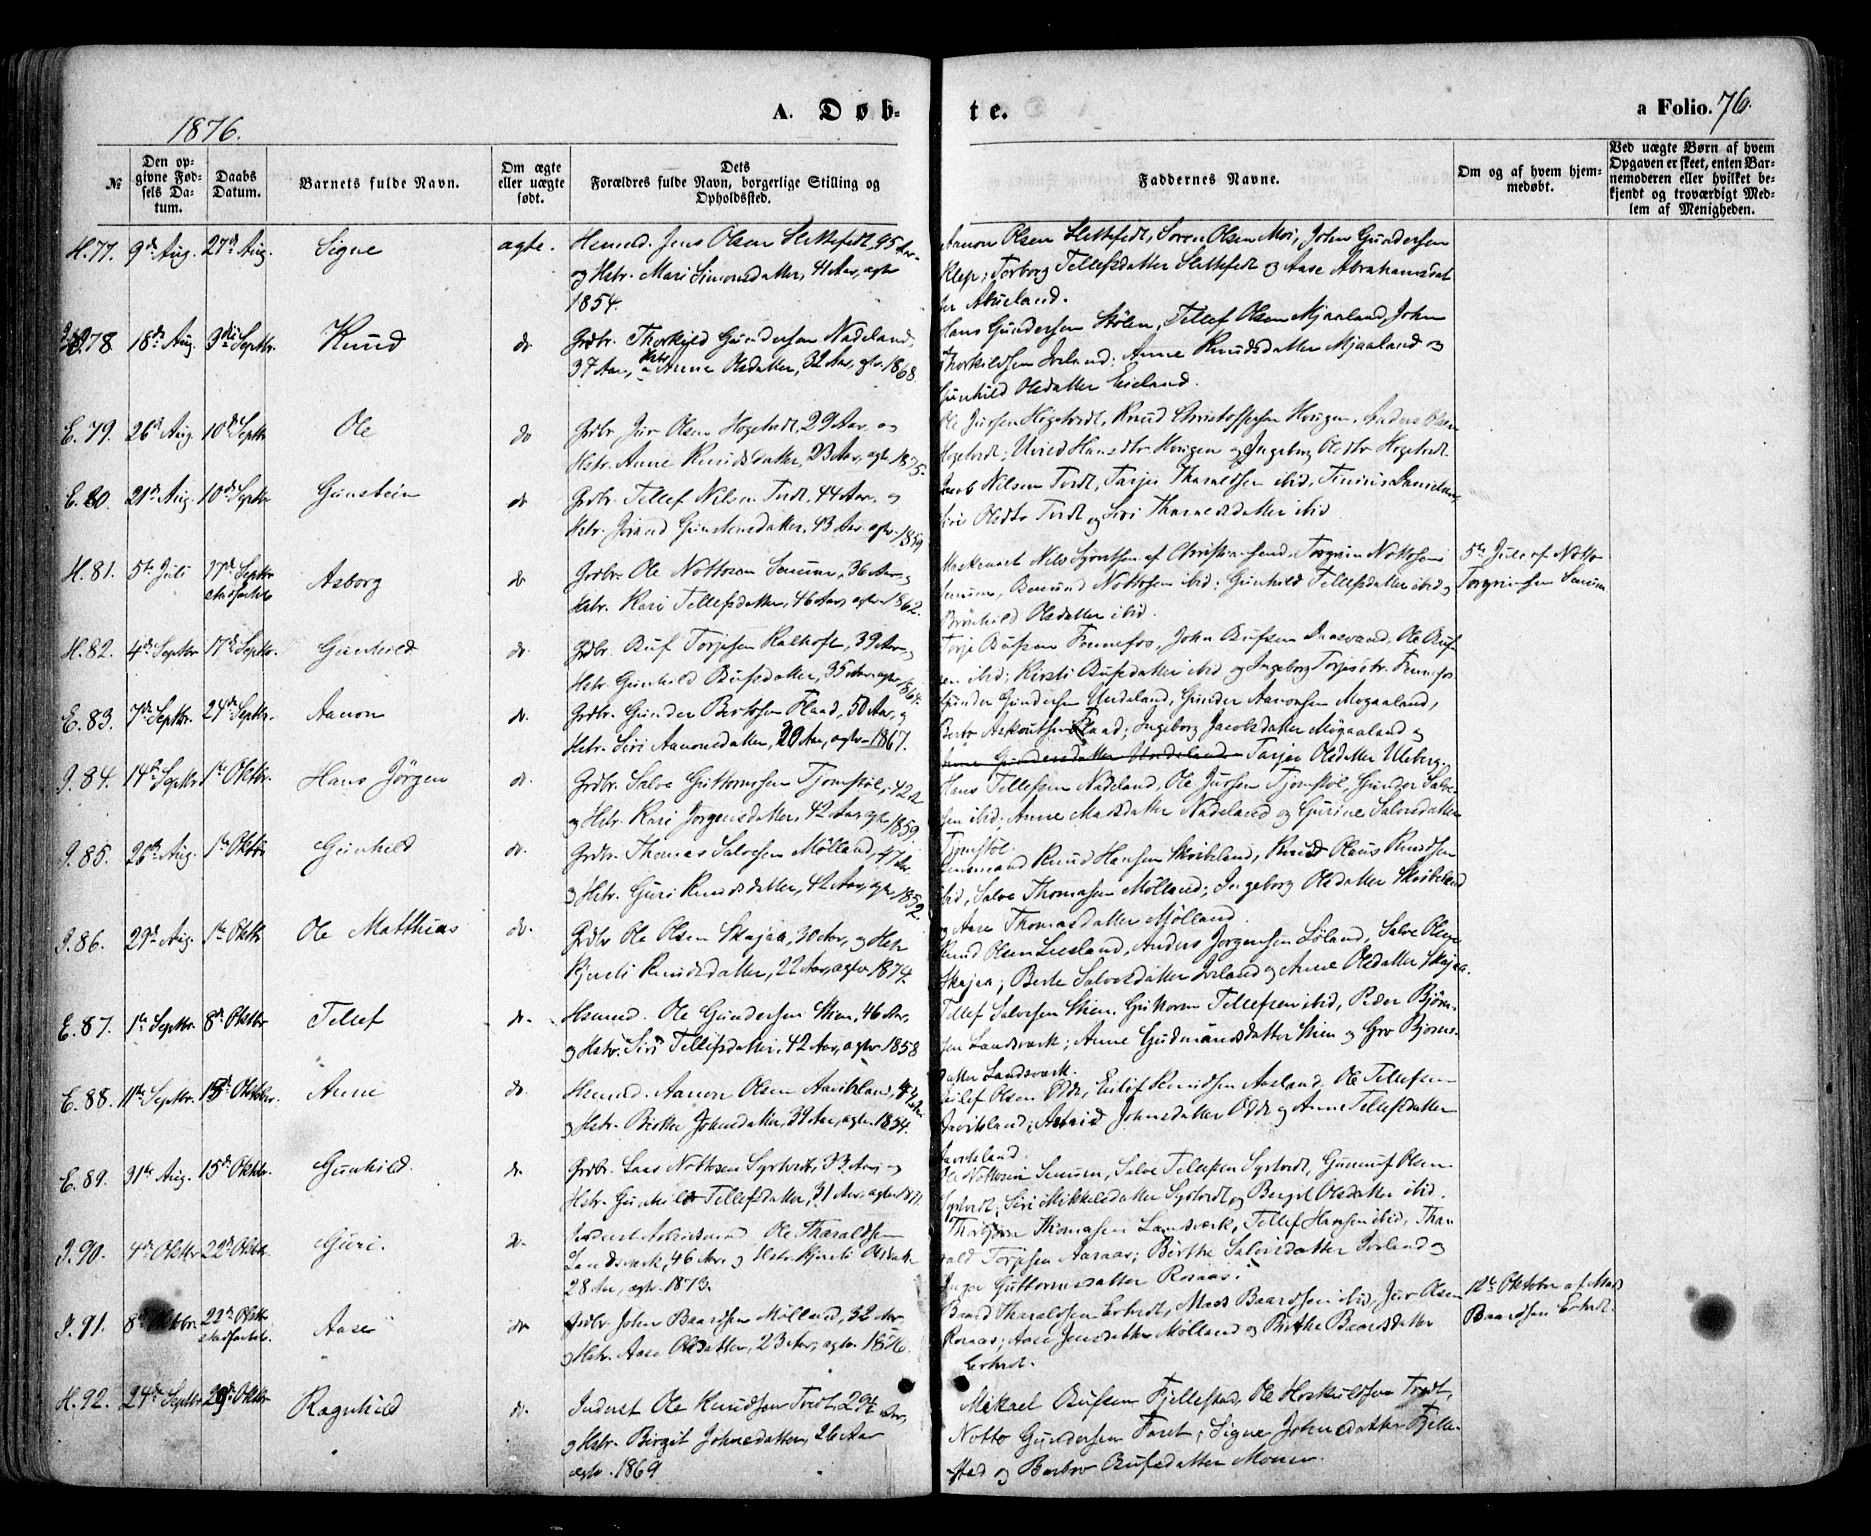 1876.
A. Døb-
te.
a Folio. 76.
№
Den op-
givne Fød-
sels Da-
tum.
Daabs
Datum.
Barnets fulde Navn.
Om ægte
eller uægte
født.
Dets
Forældres fulde Navn, borgerlige Stilling og
Opholdssted.
Faddernes Navne.
Om og af hvem hjem-
medøbt.
Ved uægte Børn af hvem
Opgaven er skeet, enten Bar-
nemoderen eller hvilket be-
kjendt og troværdigt Med-
lem af Menigheden.
H. 77. 9de Aug. 27de Aug. Signe ægte. Husmd. Jens Olsen Slettefedt, 45 Aar
og Hstr. Mari Simonsdatter, 41 Aar, egtv.
1854.
Aanon Olsen Slettefedt, Søren Olsen Moi, John Gundersen
Klep; Torborg Tellefsdatter Slettefedt og Aase Abrahamsdat
ter
78 18de Aug. 3die Septbr. Knud do Grdbr. Thorkild Gundersen Nadeland,
37 Aar, og Hstr. Anne Olsdatter, 32 Aar, egtv. 1868
Hans Gundersen Stølen, Tellef Olsen Mjaaland, John
Thorkildsen Iveland; Anne Knudsdatter Mjaaland og
Gunhild Olsdatter Eieland.
E. 79. 26de Aug. 10de Septbr Ole do Grdbr. Jur Olsen Hogetvedt, 29 Aar, og
Hstr. Anne Knudsdatter, 23 Aar, egtv. 1875.
Ole Jursen Høgetvedt, Knud Christophersen Haugen, Anders Olsen
Hogetvedt; Hansdtr. Haugen og Ingeborg Olsdtr Hogetvedt.
E. 80. 21de Aug. 10de Septbr Gunstein do Grdbr. Tellef Nilsen Tvedt, 44 Aar, og
Hstr. Jorand Gunsteinsdatter, 43 Aar, egtv. 1859
Jacob Nilsen Tvedt, Tarjei Tharaldsen ibid,
Siri Olsdtr Tvedt og Siri Tharaldsdatter ibid
H. 81. 5te Juli 17de Septbr
stadfæstet Asborg do Grdbr. Ole Nottosen Senum, 36 Aar, og
Hstr. Kari Tellefsdatter, 46 Aar, egtv. 1862.
Nils af Christianssand, Torgrim Nottosen
Senum, Nottosen ibid; Gunhild Tellefsdatter ibid og
Brønhild Olsdatter ibid.
5te Juli af Notto
Torgrimsen Senum
H. 82. 4de Septbr 17de Septbr. Gunhild do Grdbr. Buf Torjesen Kalhoft, 39 Aar og
Hstr. Gunhild Bufsdatter, 35 Aar, egtv. 1864.
Torje Bufsen Fennefos, John Bufsen Daasvand, Ole Buf-
sen ibid; Kirsti Bufsdatter ibid og Ingeborg Torjesdtr. Fennefos
E. 83. 7de Septbr. 24de Septbr. Aanon do. Grdbr. Gunder Bentsen Flaad, 50 Aar, og
Hstr. Siri Aanonsdatter, 30 Aar, egtv. 1867.
Gunder Gundersen Undeland, Gunder Aanonsen Mogaaland,
Flaad; Ingeborg Jacobsdatter Mogaaland og
Gundersdatter Undeland Tarjer Olsdatter Uleberg.
I. 84. 14de Septbr 1ste Oktbr. Hans Jørgen do. Grdbr. Salve Guttormsen Tjomstøl, 42 A
og Hstr. Kari Jørgensdatter, 42 Aar, egtv. 1859.
Hans Tellefsen Nadeland, Ole Jursen Tjomstøl, Gunder Salve-
sen ibid; Anne Madsdatter Nadeland og Gurine Salvesdatter
Tjomstøl.
I. 85. 26de Aug. 1ste Oktbr Gunhild do. Grdbr. Thomas Salvesen Mølland, 47 Aar
og Hstr. Guri Knudsdatter, 42 Aar, egtv. 1852.
Lensmand Knud Hansen Skeibeland, Knud Olaus Knudsen
ibid, Salve Thomasen Mølland; Ingeborg Olsdatter Skeibeland
og Aase Thomasdatter Mølland.
I. 86. 29de Aug. 1ste Oktbr Ole Matthias do. Grdbr Ole Olsen Skajaa, 30 Aar, og Hstr
Kjersti Knudsdatter, 22 Aar, egtv. 1874.
Knud Olsen Liesland, Anders Jørgensen Løland, Salve Olsen
Skajaa; Berte Salvesdatter Iveland og Anne Olsdatter Skajaa.
E. 87. 1ste Septbr. 8de Oktbr Tellef do. Husmd. Ole Gundersen Skien, 46 Aar,
og Hstr. Siri Tellefsdatter, 42 Aar, egtv. 1858
Tellef Salvesen Skien, Guttorm Tellefsen ibid, Peder Bjørn-
sen Landsverk; Anne Gudmundsdatter Skien og Gro Bjørns-
datter Landsverk.
E. 88. 11te Septbr. 15de Oktober. Anne do. Husmd. Aanon Olsen Aavitsland, 42 Aar
og Hstr. Birthe Johnsdatter, 39 Aar, egtv. 1854.
Eilef Olsen Odde, Eilef Knudsen Aasland, Ole Tellefsen
Aavitsland; Astrid Johnsdatter Odde og Anne Tellefsdatter
Aavitsland.
E. 89. 31te Aug. 15de Oktbr. Gunhild. do Grdbr. Lars Nottosen Syrtvedt, 33 Aar, og
Hstr. Gunhild Tellefsdatter, 31 Aar, egtv. 1871.
Ole Nottosen Senum, Salve Tellefsen Syrtvedt, Gunuf Olsen
Syrtvedt; Siri Mikkelsdatter Syrtvedt og Bergit Olsdatter ibid.
I. 90. 4de Oktbr 22de Oktbr. Guri. do. Inderst Arbeidsmand Ole Tharaldsen
Landsverk, 46 Aar, og Hstr. Kjersti Olsdatter
28 Aar, egtv. 1873.
Thorbjørn Thomasen Landsverk, Tellef Hansen ibid, Tha-
rald Torjesen Aasraas; Birthe Salvesdatter Iveland og
Inger Guttormsdatter Rosaas.
I. 91. 8de Oktbr. 22de Oktbr
stadfæstet. Aase do Grdbr John Baardsen Mølland, 32 Aar
og Hstr. Aase Olsdatter, 23 Aar, egtv. 1876.
Baard Tharaldsen Ertvedt, Mads Baardsen ibid, Jur Olsen
Rosaas; Aase Jensdatter Mølland og Birthe Baardsdatter
Ertvedt.
12te Oktober af Mads
Baardsen Ertvedt.
H. 92. 24de Septbr 29de Oktbr Ragnhild do. Inderst Ole Knudsen Tvedt, 29½ Aar,
og Hstr. Birgit Johnsdatter, 26 Aar
egtv. 1869
Mikael Bufsen Fjellestad, Ole Tvedt,
Notto Gundersen Faret; Signe Johnsdatter Fjelle-
stad og Berbro Bufsdatter Moseer